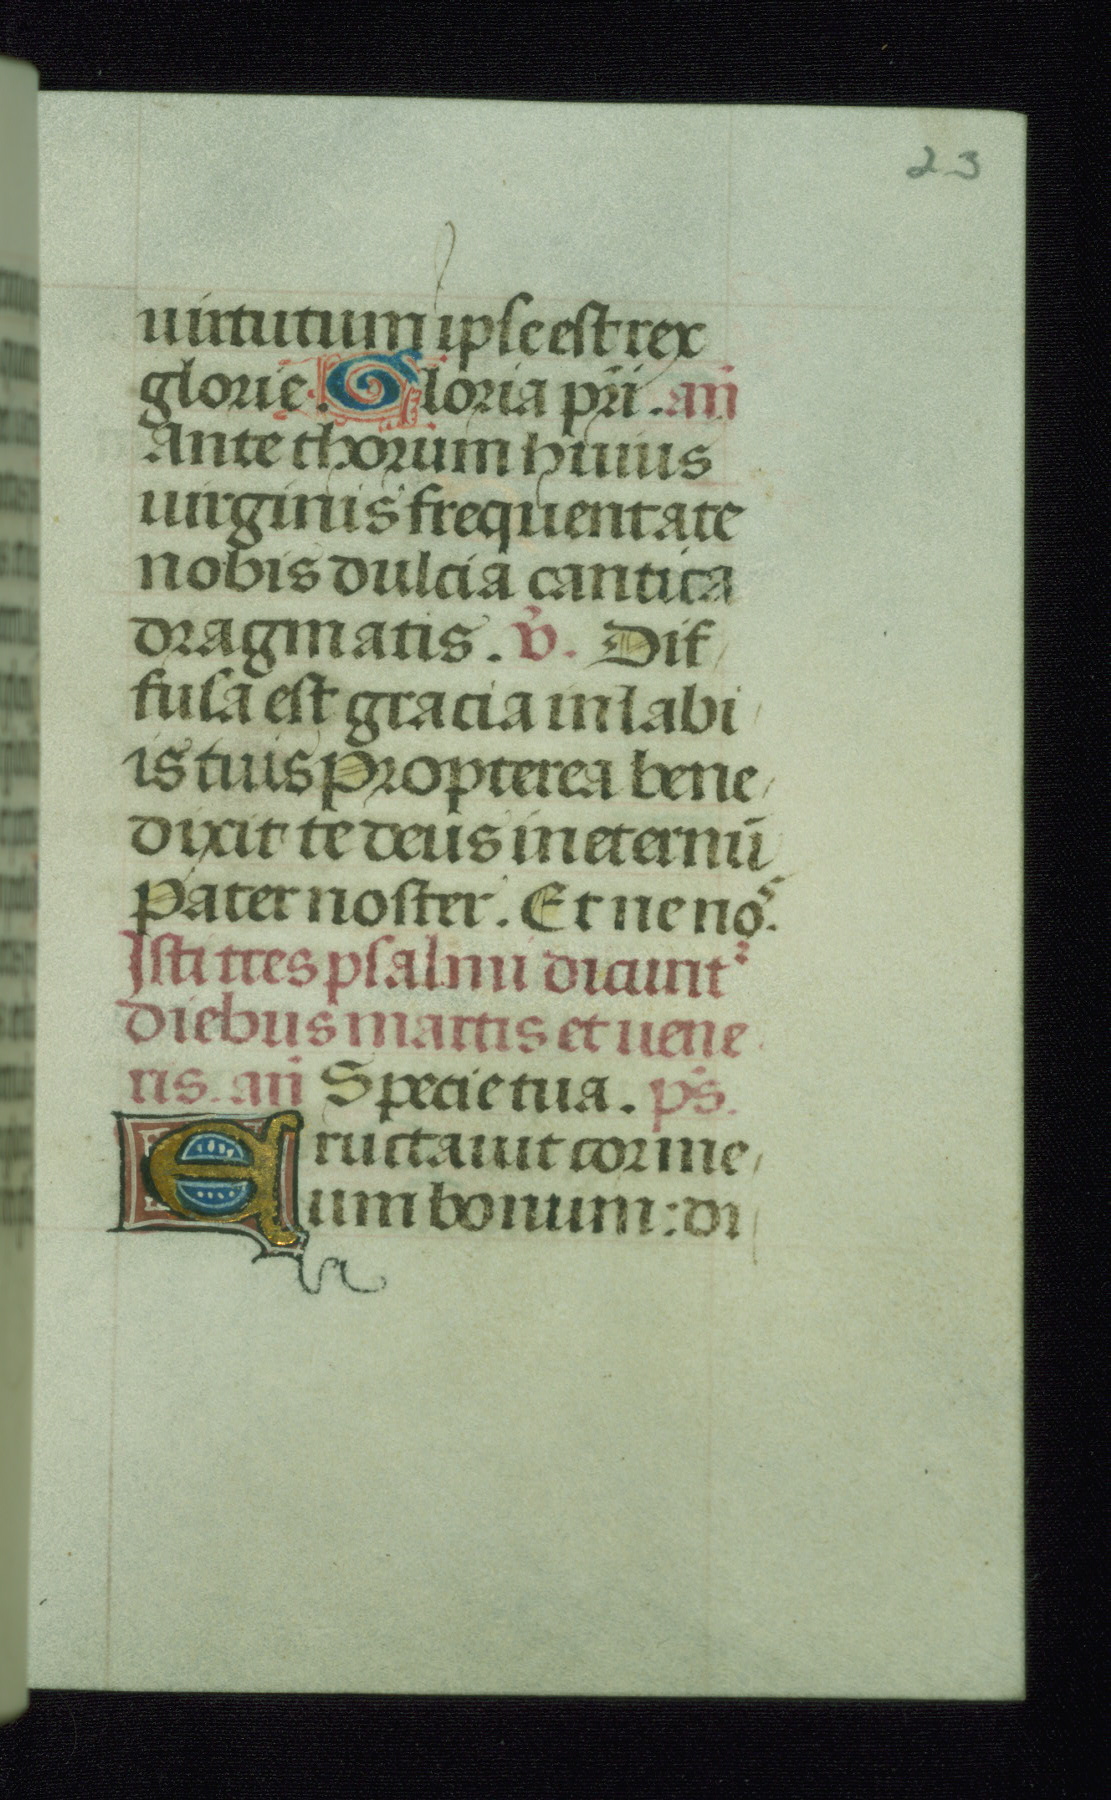 23
uirtutum ipse est rex
glorie. Gloria pr̄i. an̄
Ante thorum huius
uirginis frequentate
nobis dulcia cantica
dragmatis. v̄. Dif
fusa est gracia in labi
is tuis Propterea bene
dixit te deus in eternū
Pater noster. Et ne nos.
Isti tres psalmi dicunt᷑
diebus martis et uene
ris. an̄ Specie tua. ps̄.
Eructauit cor me
um bonum: di